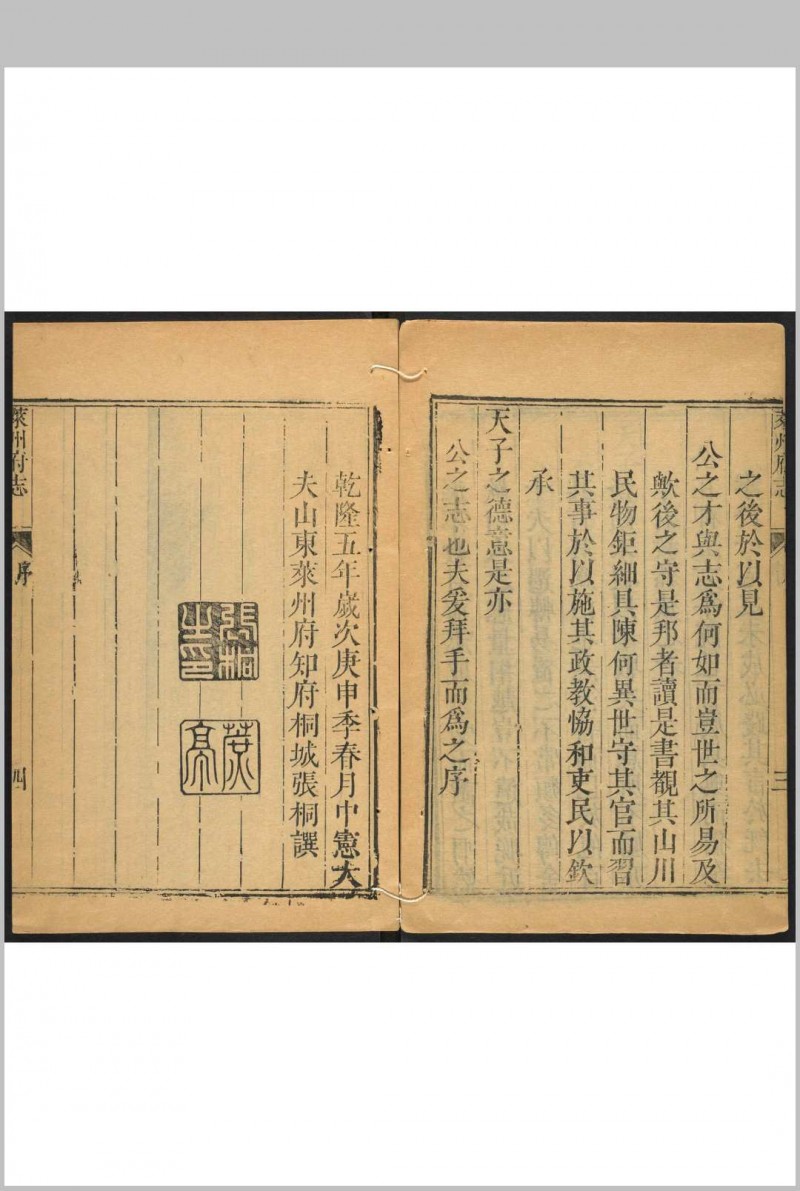 萊州府志
三
之後於以見
公之才與志爲何如而豈世之所易及
歟後之守是邦者讀是書觀其山川
民物鉅細具陳何異世守其官而習
其事於以施其政教恊和吏民以欽
承
天子之德意是亦
公之志也夫爰拜手而爲之序
乾隆五年歲次庚申季春月中憲大
夫山東萊州府知府桐城張桐譔
張桐之印
蔗亭
萊州府志
序
四